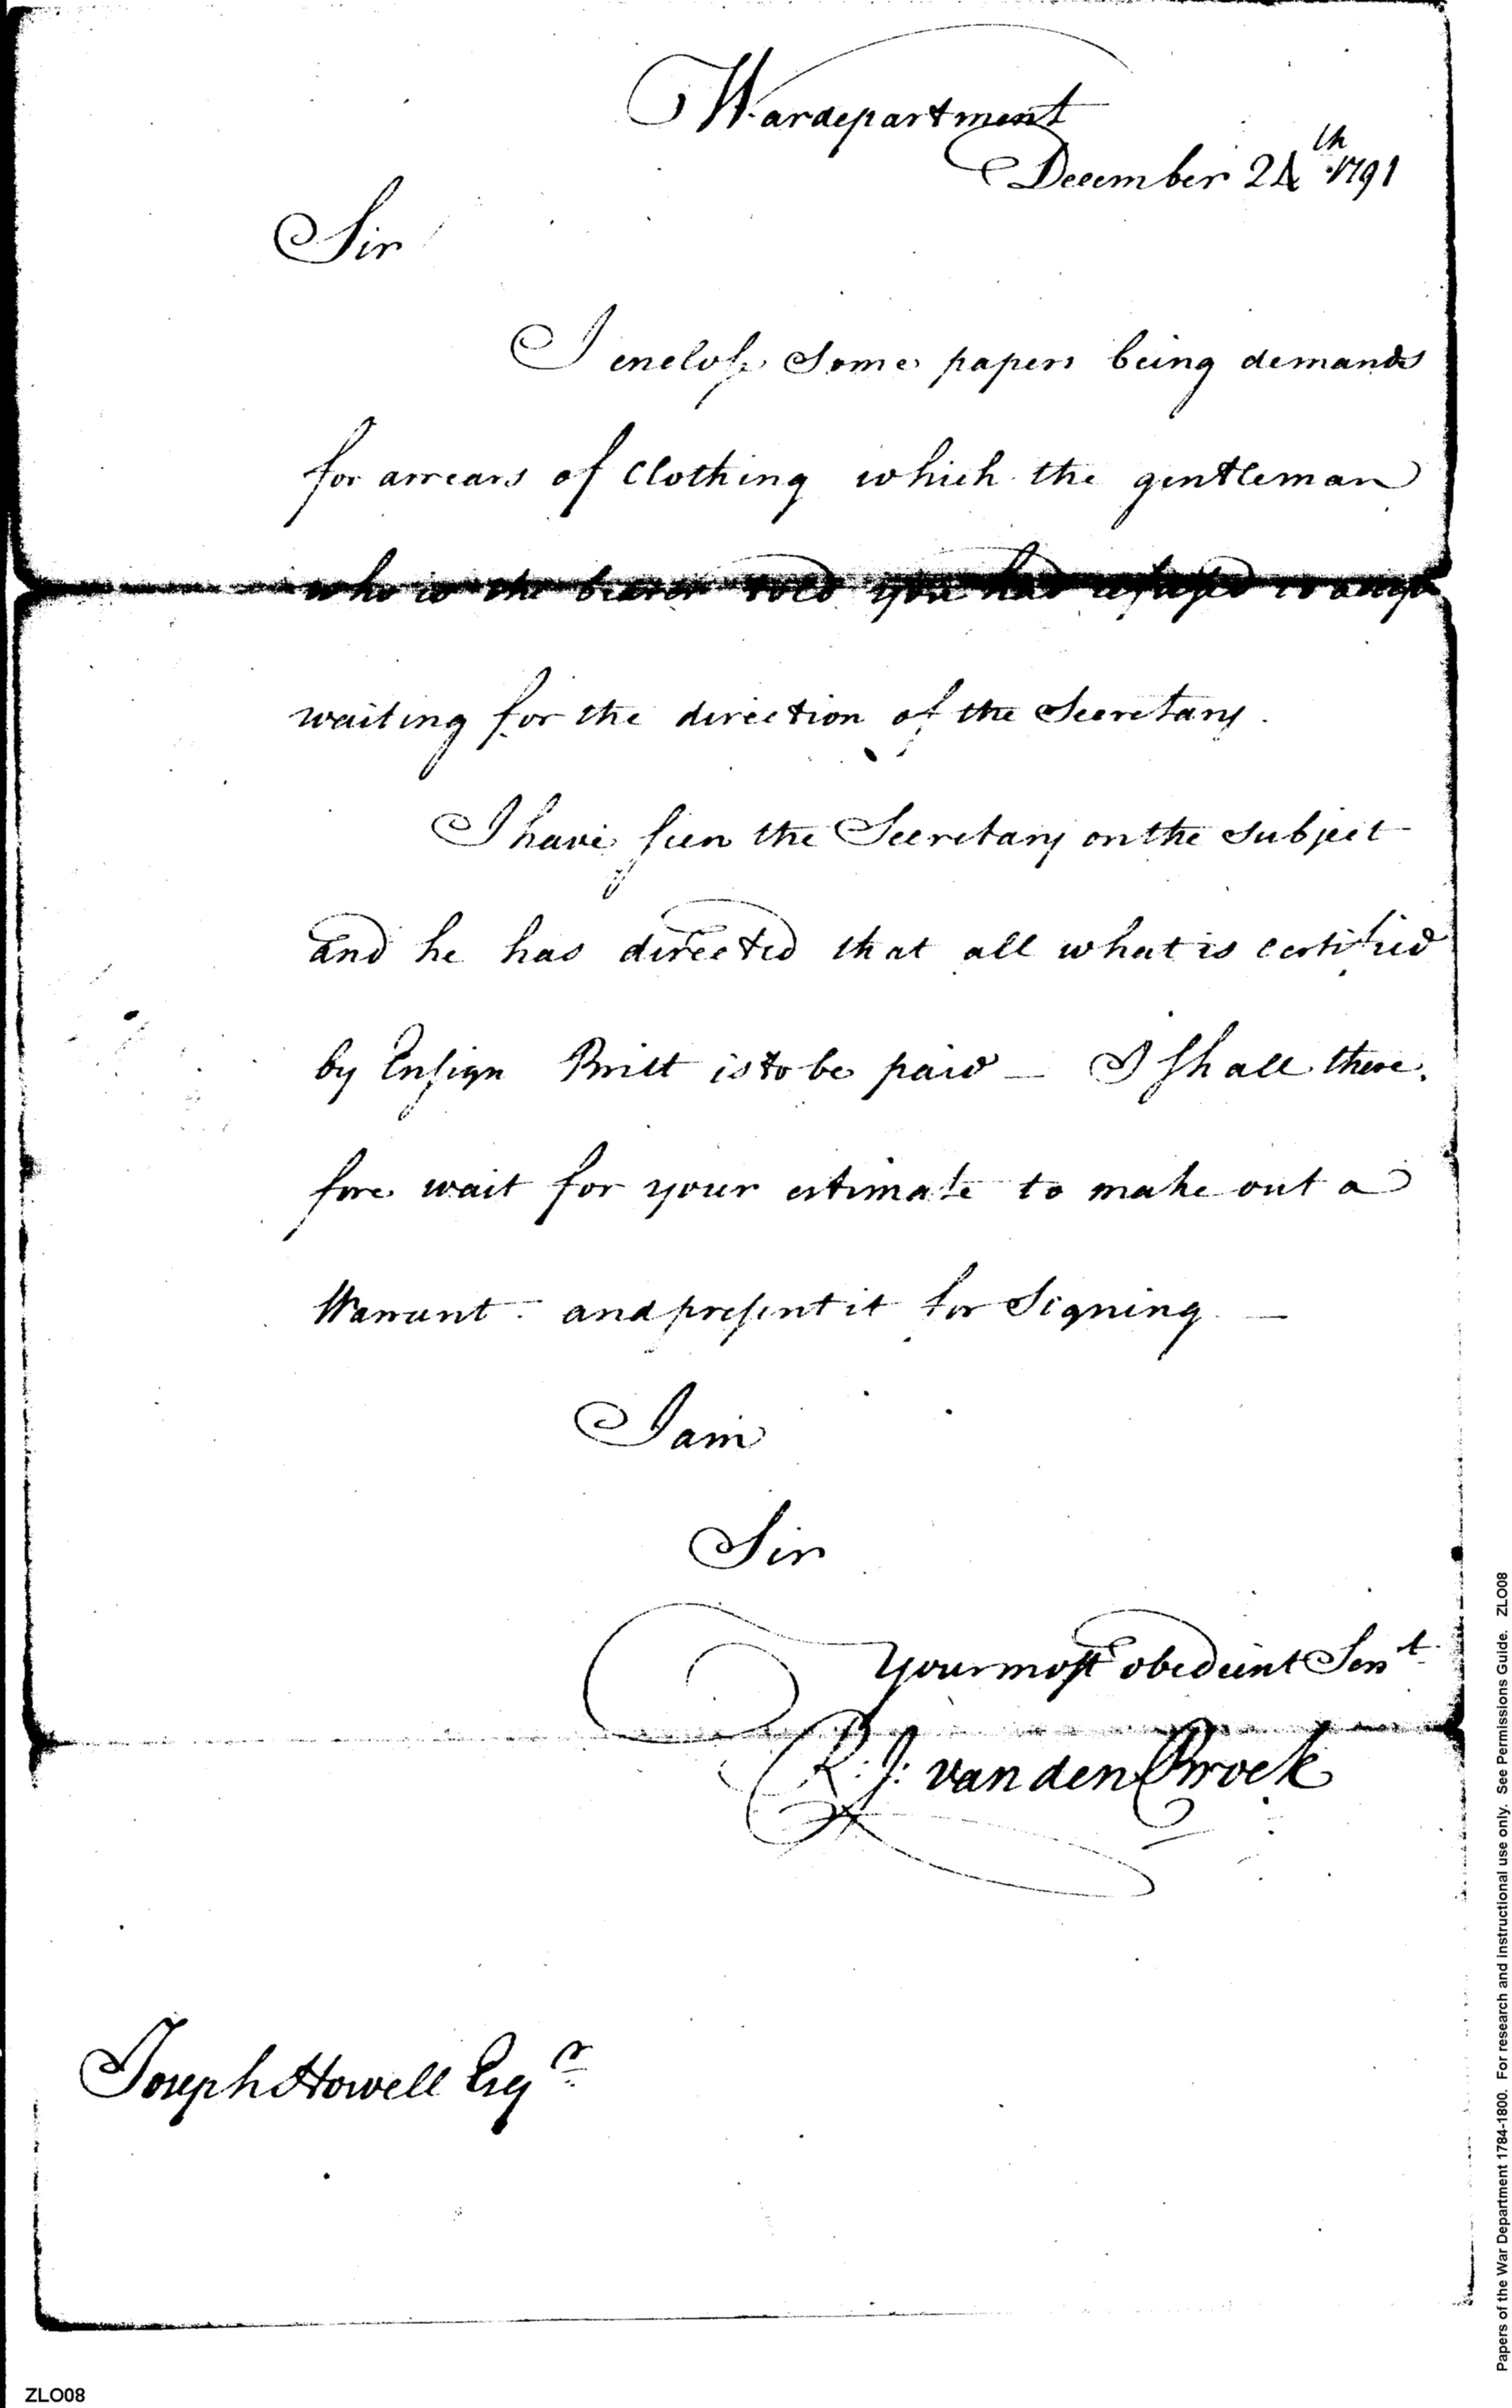 Wardepartment
December 24th 1791
Sir
I enclose some papers being demands
for arrears of Clothing which the gentleman
who is the bearer told you had refused to accept
waiting for the direction of the Secretary.
I have seen the Secretary on the subject
and he has directed that all what is certified
by Ensign Britt is to be paid — I shall there.
fore wait for your estimate to make out a
Warrant - and present it for Signing —
I am
Sir
Your most obedient Sert
R: J: van den Broek
Joseph Howell Esqr
ZLO08
Papers of the War Department 1784-1800. For research and instructional use only. See Permissions Guide. ZLO08